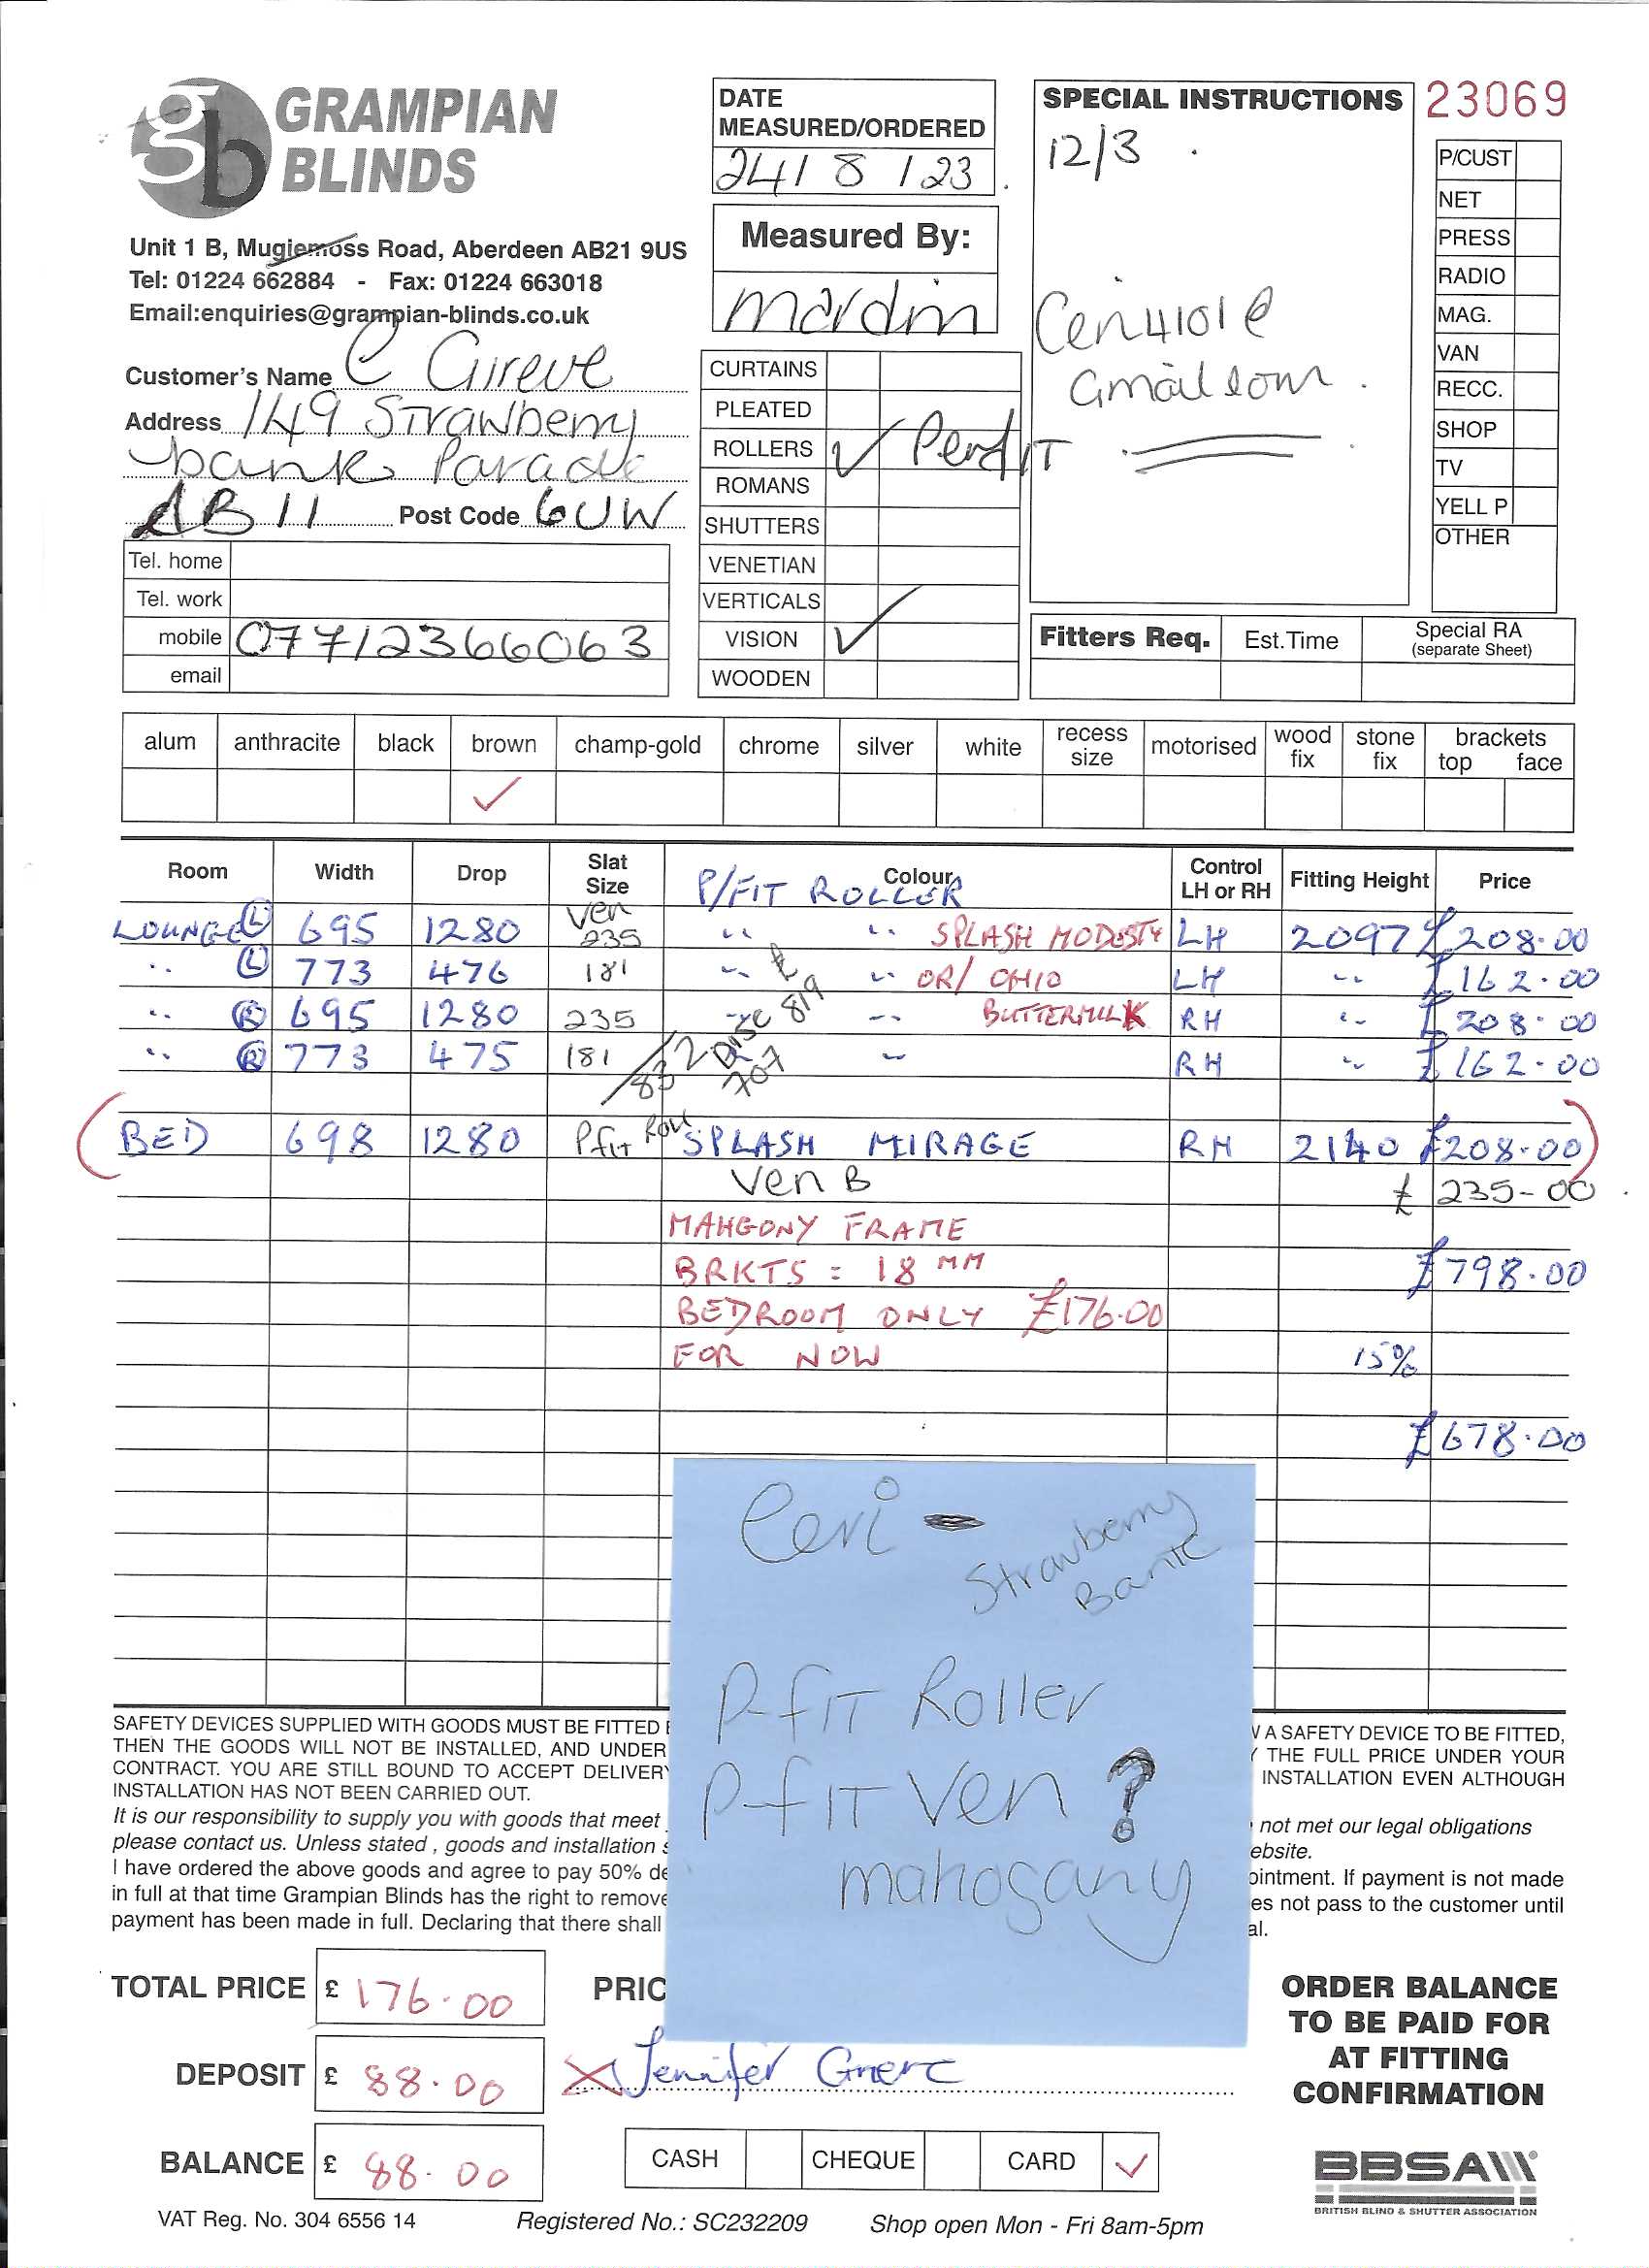 GRAMPIAN
BLINDS
Unit 1 B, Mugiemoss Road, Aberdeen AB21 9US
Tel: 01224 662884 - Fax: 01224 663018
Email:enquiries@grampian-blinds.co.uk
Customer's Name C Greve
Address 149 Strawberry
bank Parade
AB11 Post Code 6UW
Tel. home
Tel. work
mobile 07712366063
email
DATE
MEASURED/ORDERED
24/8/23
Measured By:
CURTAINS
PLEATED
ROLLERS ✓ Perf/IT
ROMANS
SHUTTERS
VENETIAN
VERTICALS
VISION ✓
WOODEN
SPECIAL INSTRUCTIONS
12/3
Ceri4101@
Gmail com
23069
P/CUST
NET
PRESS
RADIO
MAG.
VAN
RECC.
SHOP
TV
YELL P
OTHER
Fitters Req. Est.Time Special RA
(separate Sheet)
alum anthracite black brown champ-gold chrome silver white recess size motorised wood fix stone fix brackets top face
✓
Room Width Drop Slat Size Colour Control LH or RH Fitting Height Price
P/FIT ROLLER
Ven
LOUNGE (L) 695 1280 235 " " SPLASH MODESTY LH 2097 £208.00
" (L) 773 476 181 " " OR/ OHIO LH " £162.00
" (R) 695 1280 235 " " BUTTERMILK RH " £208.00
" (R) 773 475 181 " RH " £162.00
/832 DISC 819
707
(BED 698 1280 Pfit Roll SPLASH MIRAGE RH 2140 £208.00)
Ven B £235-00
MAHGONY FRAME
BRKTS = 18 MM £798.00
BEDROOM ONLY £176.00
FOR NOW 15%
£678.00
Ceri -
Strawberry
Bank
P-fIT Roller
P-fIT Ven ?
mahogany
SAFETY DEVICES SUPPLIED WITH GOODS MUST BE FITTED
THEN THE GOODS WILL NOT BE INSTALLED, AND UNDER
CONTRACT. YOU ARE STILL BOUND TO ACCEPT DELIVERY
INSTALLATION HAS NOT BEEN CARRIED OUT.
It is our responsibility to supply you with goods that meet
please contact us. Unless stated , goods and installation
I have ordered the above goods and agree to pay 50% de
in full at that time Grampian Blinds has the right to remove
payment has been made in full. Declaring that there shall
A SAFETY DEVICE TO BE FITTED,
THE FULL PRICE UNDER YOUR
INSTALLATION EVEN ALTHOUGH
not met our legal obligations
ebsite.
ointment. If payment is not made
es not pass to the customer until
al.
TOTAL PRICE £ 176.00
PRIC
DEPOSIT £ 88.00
X Jennifer
BALANCE £ 88.00
CASH CHEQUE CARD ✓
ORDER BALANCE
TO BE PAID FOR
AT FITTING
CONFIRMATION
BBSA
BRITISH BLIND & SHUTTER ASSOCIATION
VAT Reg. No. 304 6556 14 Registered No.: SC232209 Shop open Mon - Fri 8am-5pm